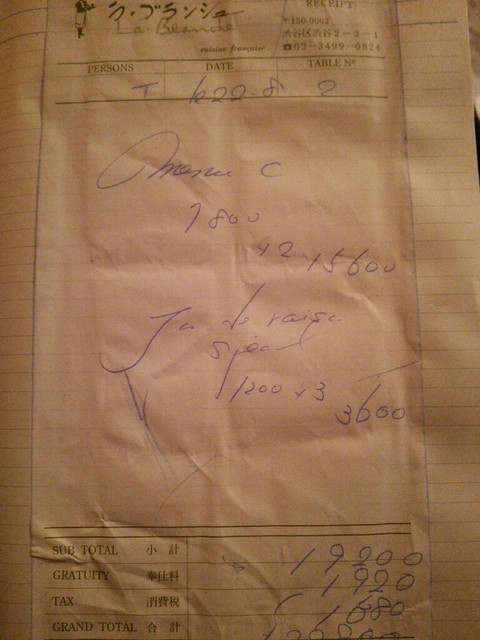 ラ・ブランシュ
La Blanche
cuisine française
RECEIPT
〒150-0002
渋谷区渋谷2-3-1
☎03-3499-0824
PERSONS DATE TABLE Nº
22-8 2
menu C
7800
×2 15600
1200 x 3
3600
SUB TOTAL 小計 19200
GRATUITY 奉仕料 1920
TAX 消費税
GRAND TOTAL 合計